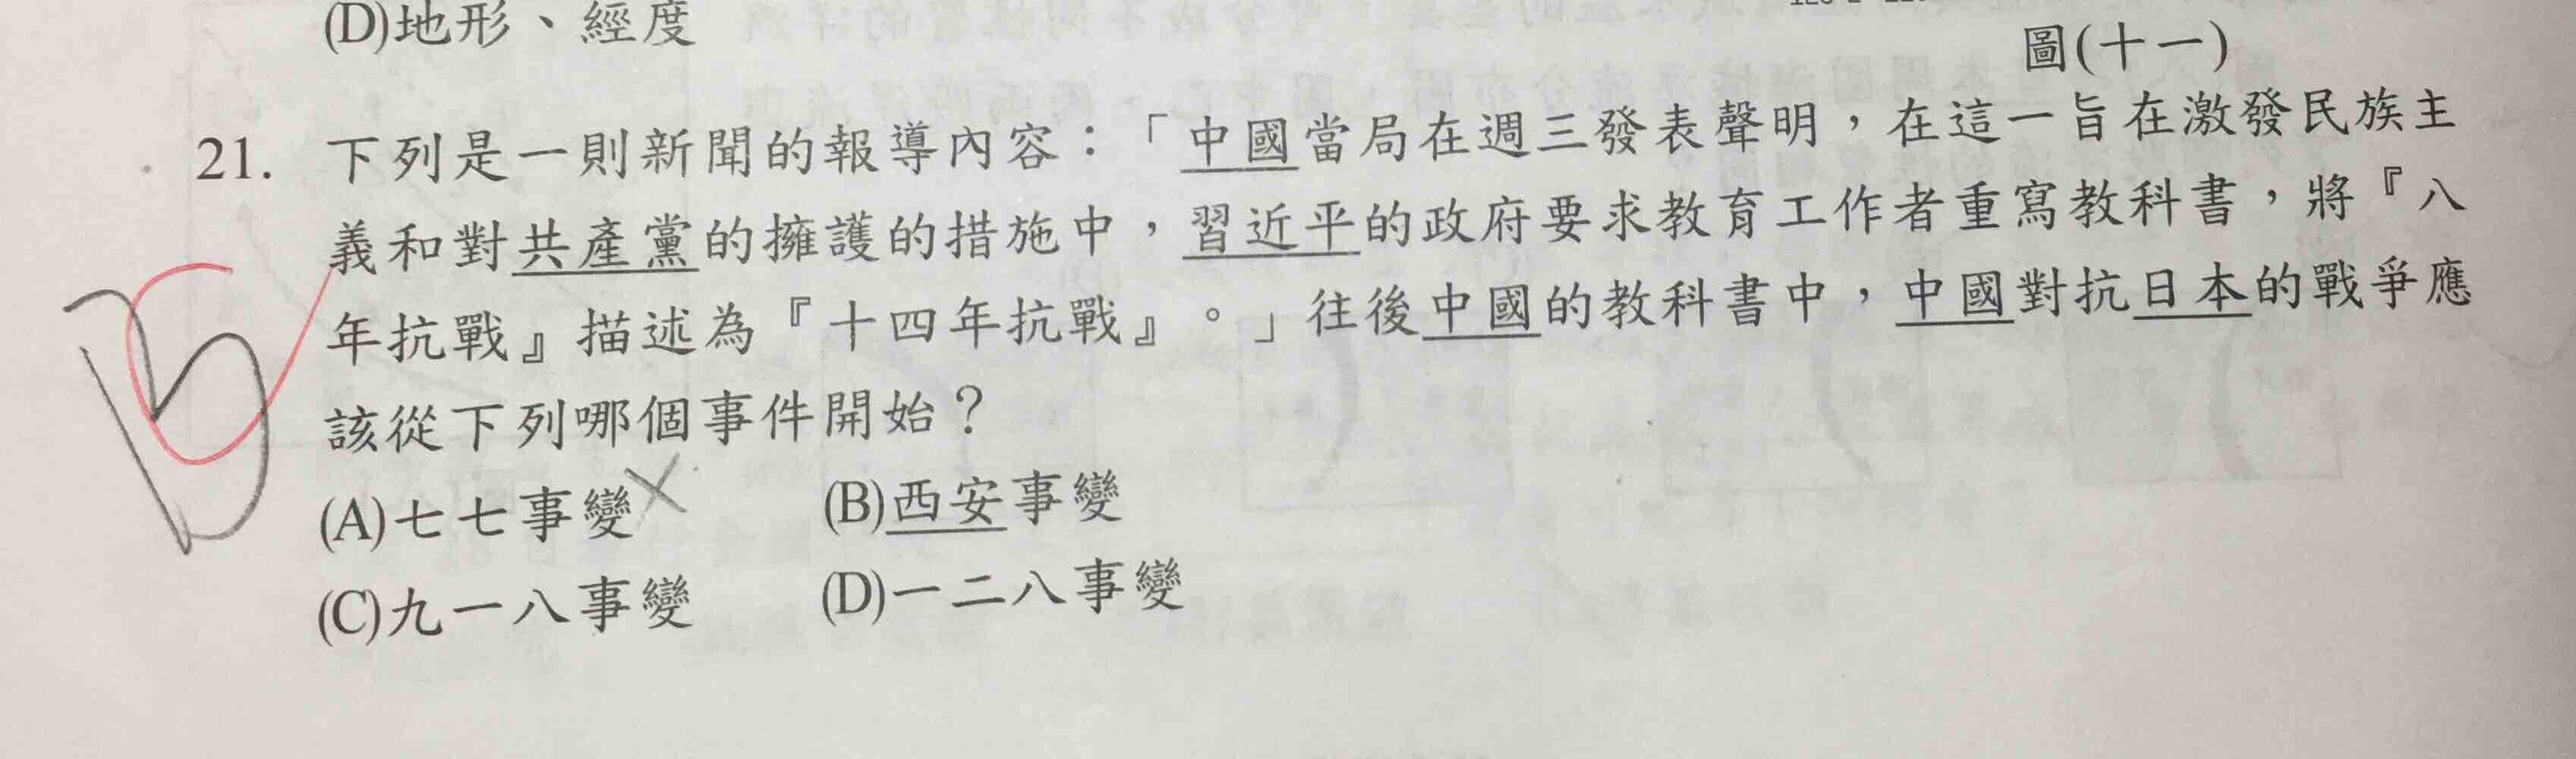 (D)地形、經度
圖(十一)
21. 下列是一則新聞的報導內容：「中國當局在週三發表聲明，在這一旨在激發民族主
義和對共產黨的擁護的措施中，習近平的政府要求教育工作者重寫教科書，將『八
年抗戰』描述為『十四年抗戰』。」往後中國的教科書中，中國對抗日本的戰爭應
該從下列哪個事件開始？
(A)七七事變 (B)西安事變
(C)九一八事變 (D)一二八事變